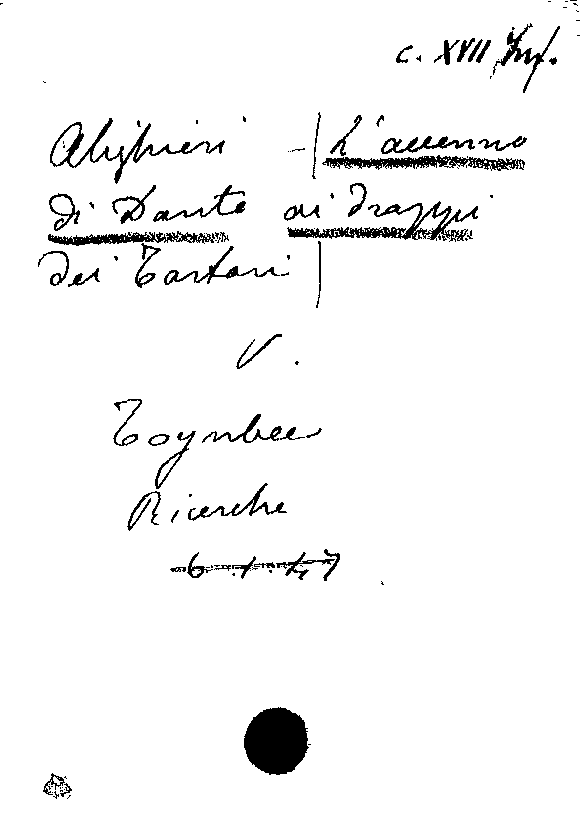 c. XVII Inf.
Alighieri - L'accenno
di Dante ai drappi
dei Tartari
V.
Toynbee
Ricerche
6.1.47